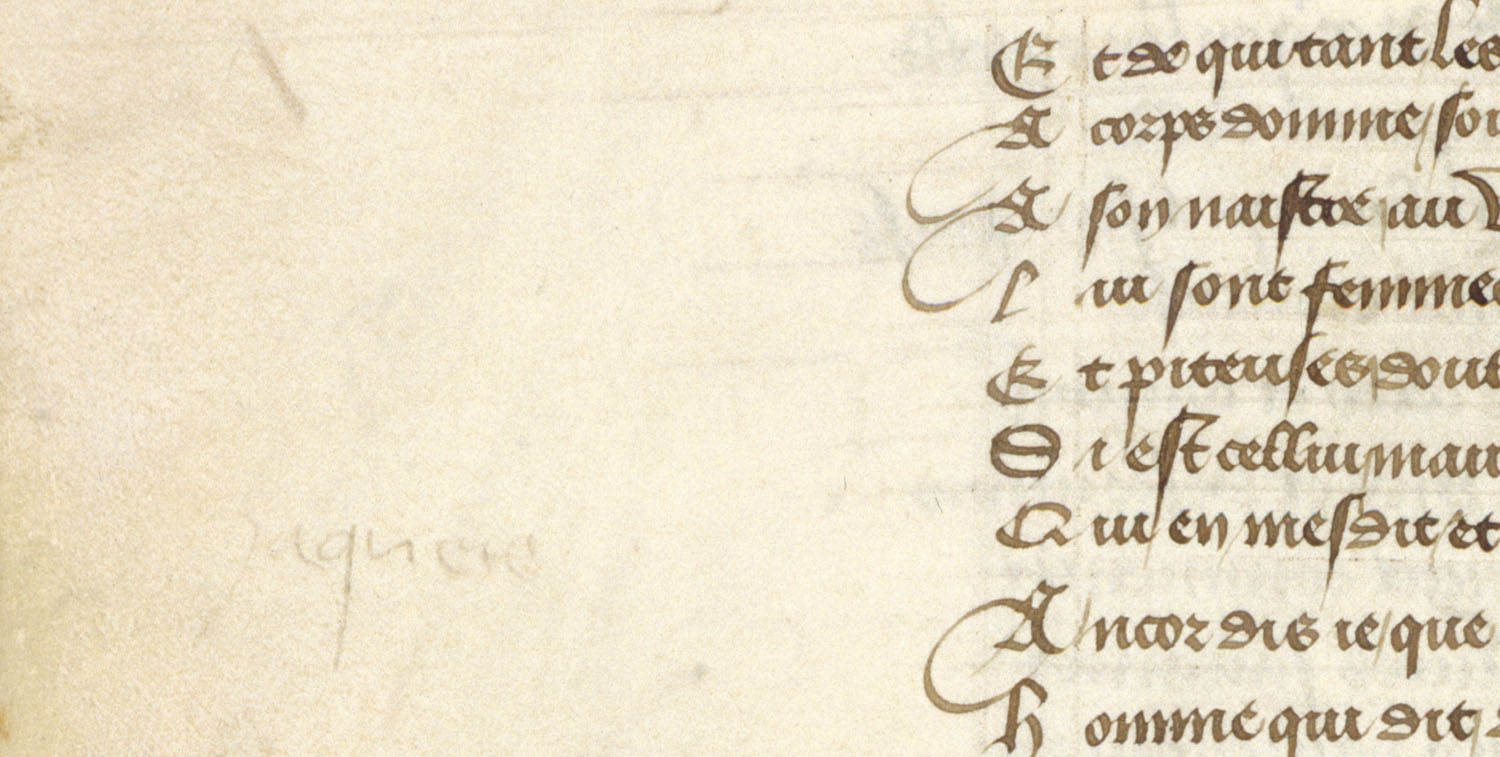 Et de qui tant les
A corps domme / son
A son naistre au
Lui sont femmes
Et piteuses dont
Si est cellui mau
Qui en mesdit et
Ancor dis ie / que
Homme qui dit